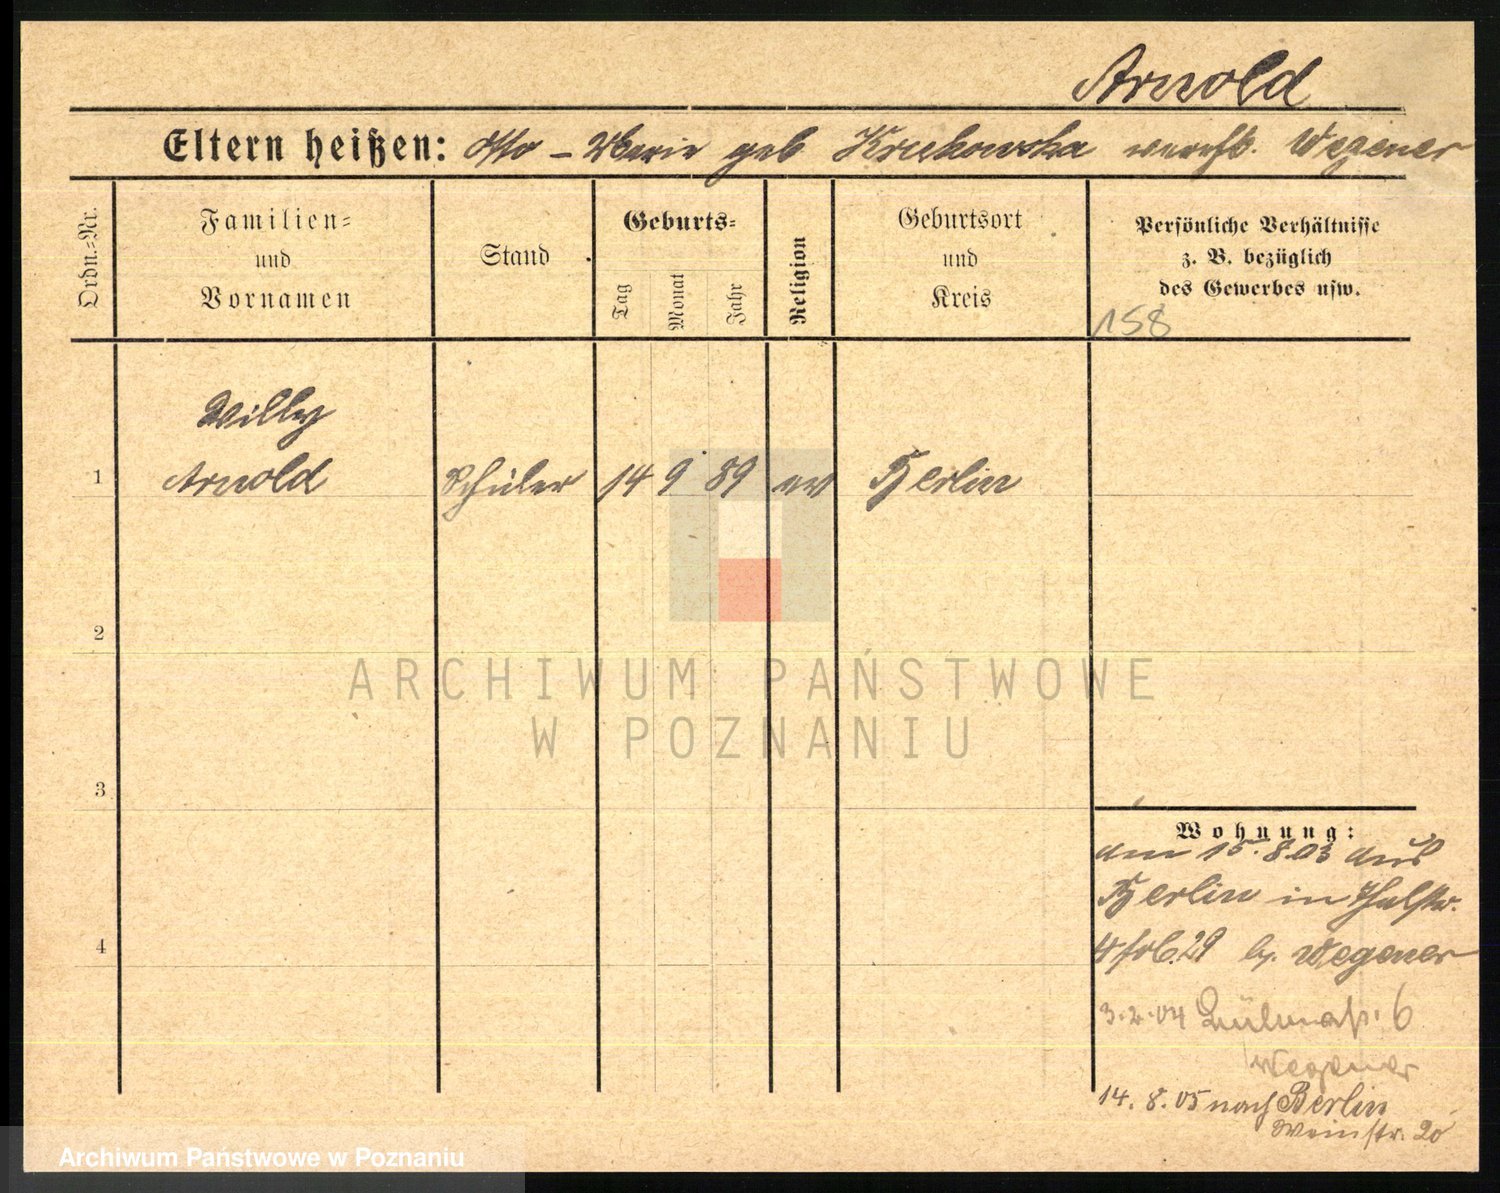 Arnold
Eltern heißen: Otto – Marie geb Krukowska verehl. Wegener
Ordn.=Nr.
Familien=
und
Vornamen
Stand
Geburts=
Tag
Monat
Jahr
Religion
Geburtsort
und
Kreis
Persönliche Verhältnisse
z. B. bezüglich
des Gewerbes usw.
158
Willy
1 Arnold Schüler 14 9 89 ev Berlin
2
3
4
Wohnung:
am 15.8.03 aus
Berlin in
29 Wegener
3.2.04 6
Wegener
14.8.05 nach Berlin
Weinstr. 20
ARCHIWUM PAŃSTWOWE
W POZNANIU
Archiwum Państwowe w Poznaniu